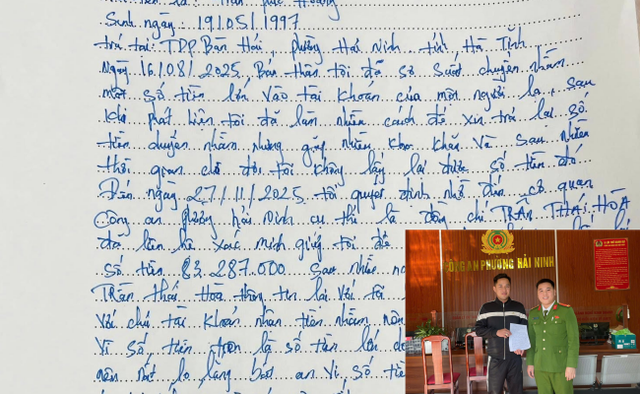 Sinh ngày: 19/05/1997
trú tại: TDP. Bàn Hải, phường Hải Ninh tỉnh Hà Tĩnh
Ngày 16/08/2025, Bản thân tôi đã sơ suất chuyển nhầm
một số tiền lớn vào tài khoản của một người lạ, sau
khi phát hiện tôi đã làm nhiều cách để xin trả lại số
tiền chuyển nhầm nhưng gặp nhiều khó khăn và sau nhiều
thời gian chờ đợi tôi không lấy lại được số tiền đó
Đến ngày 27/11/2025 tôi quyết định nhờ đến cơ quan
Công an phường hải Ninh cụ thể là đồng chí TRẦN THÁI HÒA
đã liên hệ xác minh giúp tôi để
số tiền 83.287.000 sau nhiều
Trần thái Hoà thông tin lại với tôi
với chủ tài khoản nhận tiền nhầm
Vì số tiền trên là số tiền lớn
nên rất lo lắng bất an vì số tiền
CÔNG AN PHƯỜNG HẢI NINH